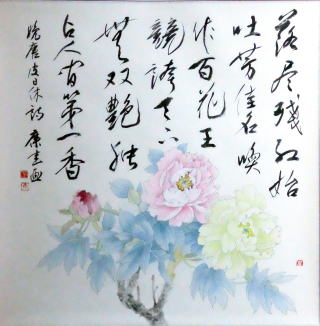 落尽残红始
吐芳佳名唤
作百花王
竞夸天下
无双艳独
占人间第一香
晚唐皮日休诗 康画